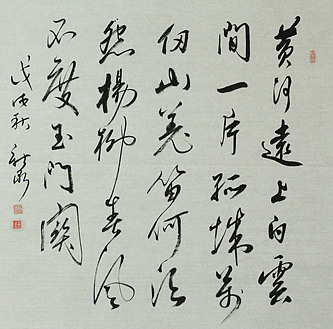 黄河遠上白雲
間一片孤城萬
仞山羌笛何須
怨楊柳春風
不度玉門関
戊戌秋